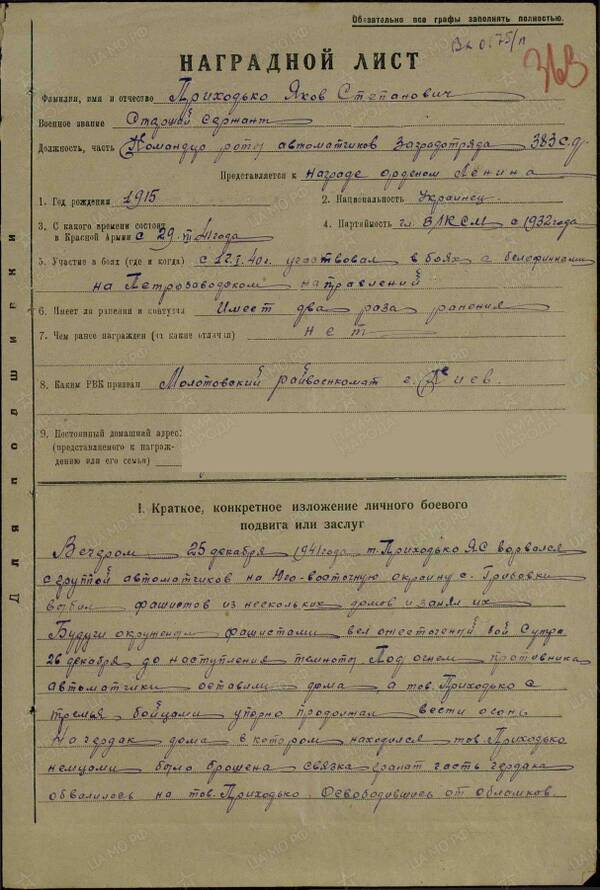 Обязательно все графы заполнять полностью.
НАГРАДНОЙ ЛИСТ
Фамилия, имя и отчество Приходько Яков Степанович
Военное звание Старший сержант
Должность, часть Командир роты автоматчиков Заградотряда 383 с.д.
Представляется к награде орденом Ленина
1. Год рождения 1915 2. Национальность Украинец
3. С какого времени состоит в Красной Армии с 29. 41 года 4. Партийность ВЛКСМ с 1932 года
5. Участие в боях (где и когда) с 40 г. участвовал в боях с белофиннами
на Петрозаводском направлений
6. Имеет ли ранения и контузии Имеет два раза ранения
7. Чем ранее награжден (за какие отличия) нет
8. Каким РВК призван Молотовский райвоенкомат г. Киев.
9. Постоянный домашний адрес:
(представляемого к награж-
дению или его семьи)
Для подшивки
I. Краткое, конкретное изложение личного боевого
подвига или заслуг
Вечером 25 декабря 1941 года т. Приходько Я С ворвался
с группой автоматчиков на Юго-восточную окраину с.
выбил фашистов из нескольких домов и занял их
Будучи окружен фашистами вел ожесточений бой Сутра
26 декабря до наступления темноты Под огнем противника
автоматчики оставили дома а тов. Приходько с
тремья бойцами упорно продолжал вести огонь
На чердак дома в котором находился тов. Приходько
немцами была брошена связка гранат часть чердака
обвалилось на тов. Приходько. Освободившись от обломков.